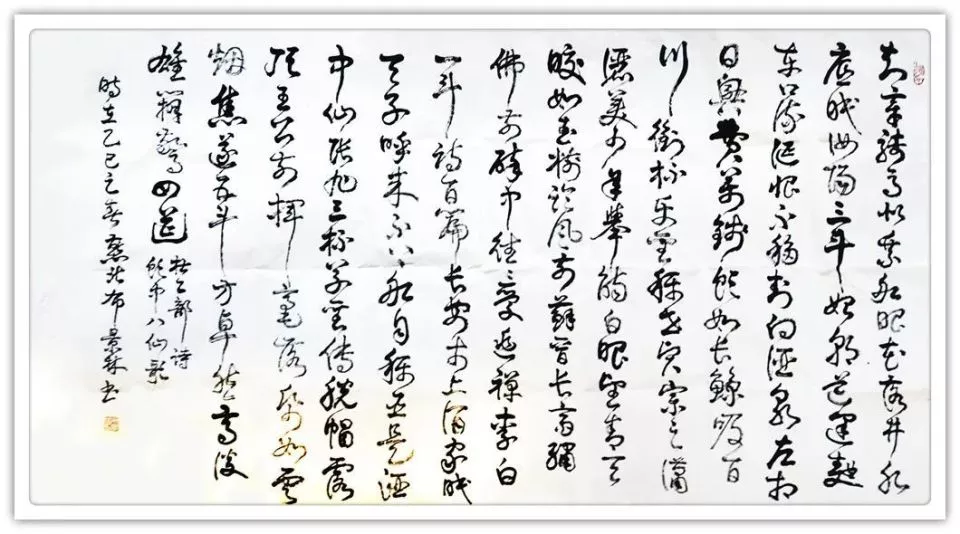 知章騎馬似乘船眼花落井水
底眠汝陽三斗始朝道逢麴
車口流涎恨不移封向酒泉左相
日興費萬錢飲如長鯨吸百
川銜杯樂聖稱世賢宗之瀟
灑美少年舉觴白眼望青天
皎如玉樹臨風前蘇晉長齋繡
佛前醉中往往愛逃禪李白
一斗詩百篇長安市上酒家眠
天子呼來不上船自稱臣是酒
中仙張旭三杯草聖傳脫帽露
頂王公前揮毫落紙如雲
煙焦遂五斗方卓然高談
雄辯驚四筵
杜工部詩
飲中八仙歌
時在乙巳之春燕北布景林書